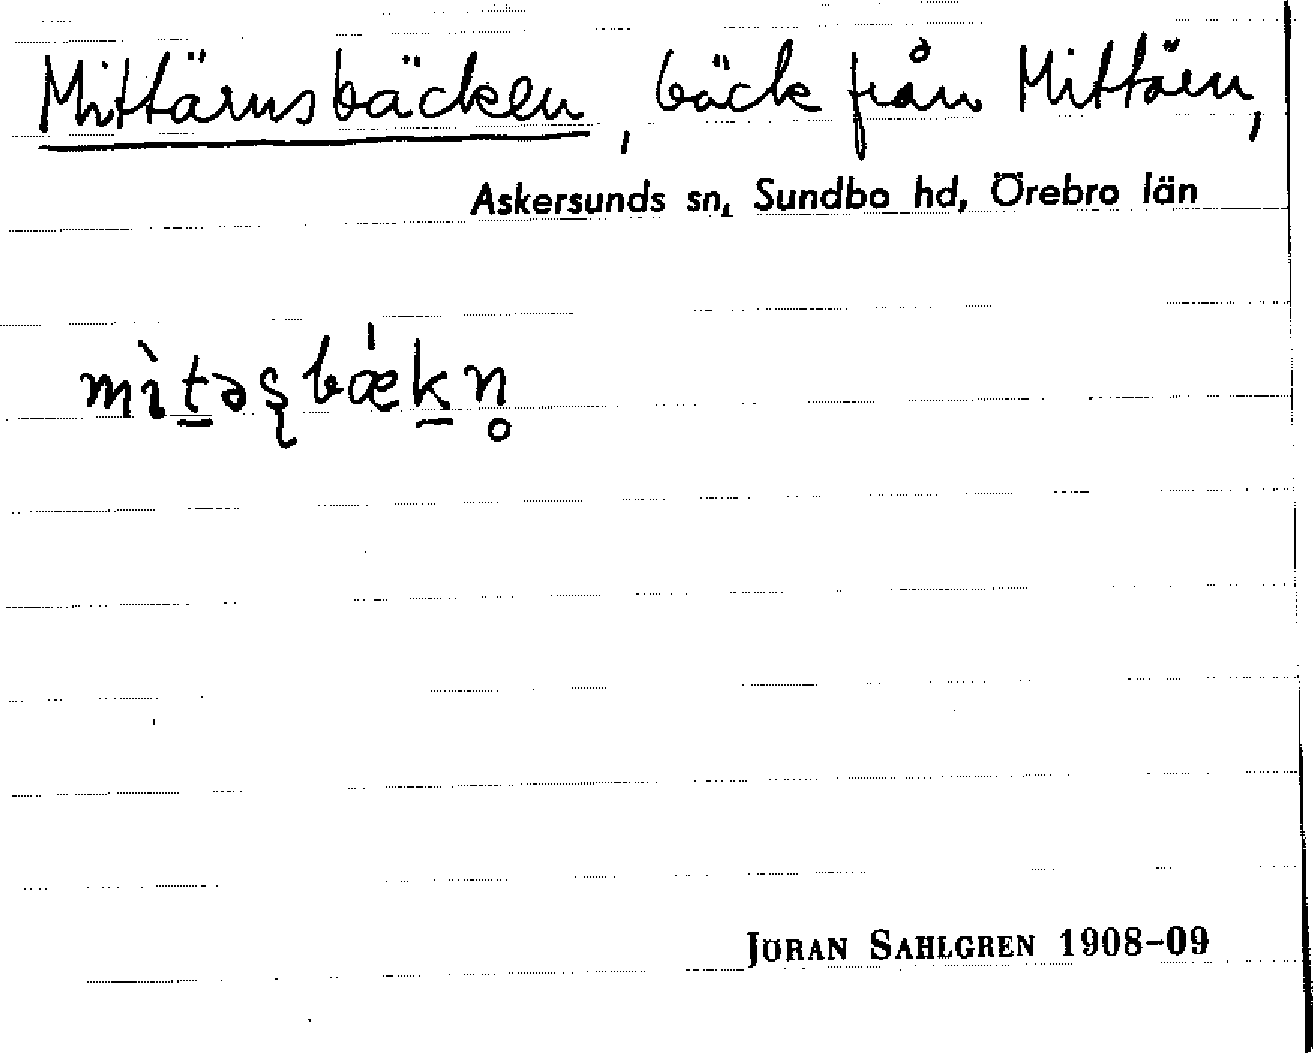 Mittärnsbäcken, bäck från Mittärn,
Askersunds sn, Sundbo hd, Örebro län
mìt̠əʂbǽk̠n̥
JÖRAN SAHLGREN 1908-09